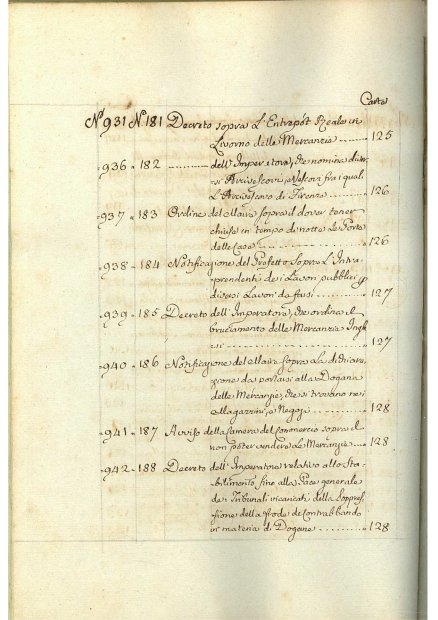 Carte
N° 931 N° 181 Decreto sopra l'Entrepôt Reale in
Livorno delle Mercanzie ........ 125
936 " 182 ........ dell'Imperatore, che nomina diver-
si Arcivescovi, e Vescovi fra i quali
l'Arcivescovo di Firenze ........ " 126
937 " 183 Ordine del Maire sopra il dover tener
chiuse in tempo di notte le Porte
delle Case ........ " 126
938 " 184 Notificazione del Prefetto sopra l'Intra-
prendenti dei Lavori pubblici p
diversi Lavori da farsi ........ " 127
939 " 185 Decreto dell'Imperatore, che ordina il
bruciamento delle Mercanzie Ingle-
si ........ " 127
940 " 186 Notificazione del Maire sopra la dichiara-
zione da portarsi alla Dogana
delle Mercanzie, che si trovano nei
Magazzini, e Negozj ........ 128
941 " 187 Avviso della Camera del Commercio sopra il
non poter vendere le Mercanzie .... " 128
942 " 188 Decreto dell'Imperatore relativo allo Sta-
bilimento fino alla Pace generale
dei Tribunali incaricati della Soppres-
sione della frode del Contrabbando
in materia di Dogane ........ " 128